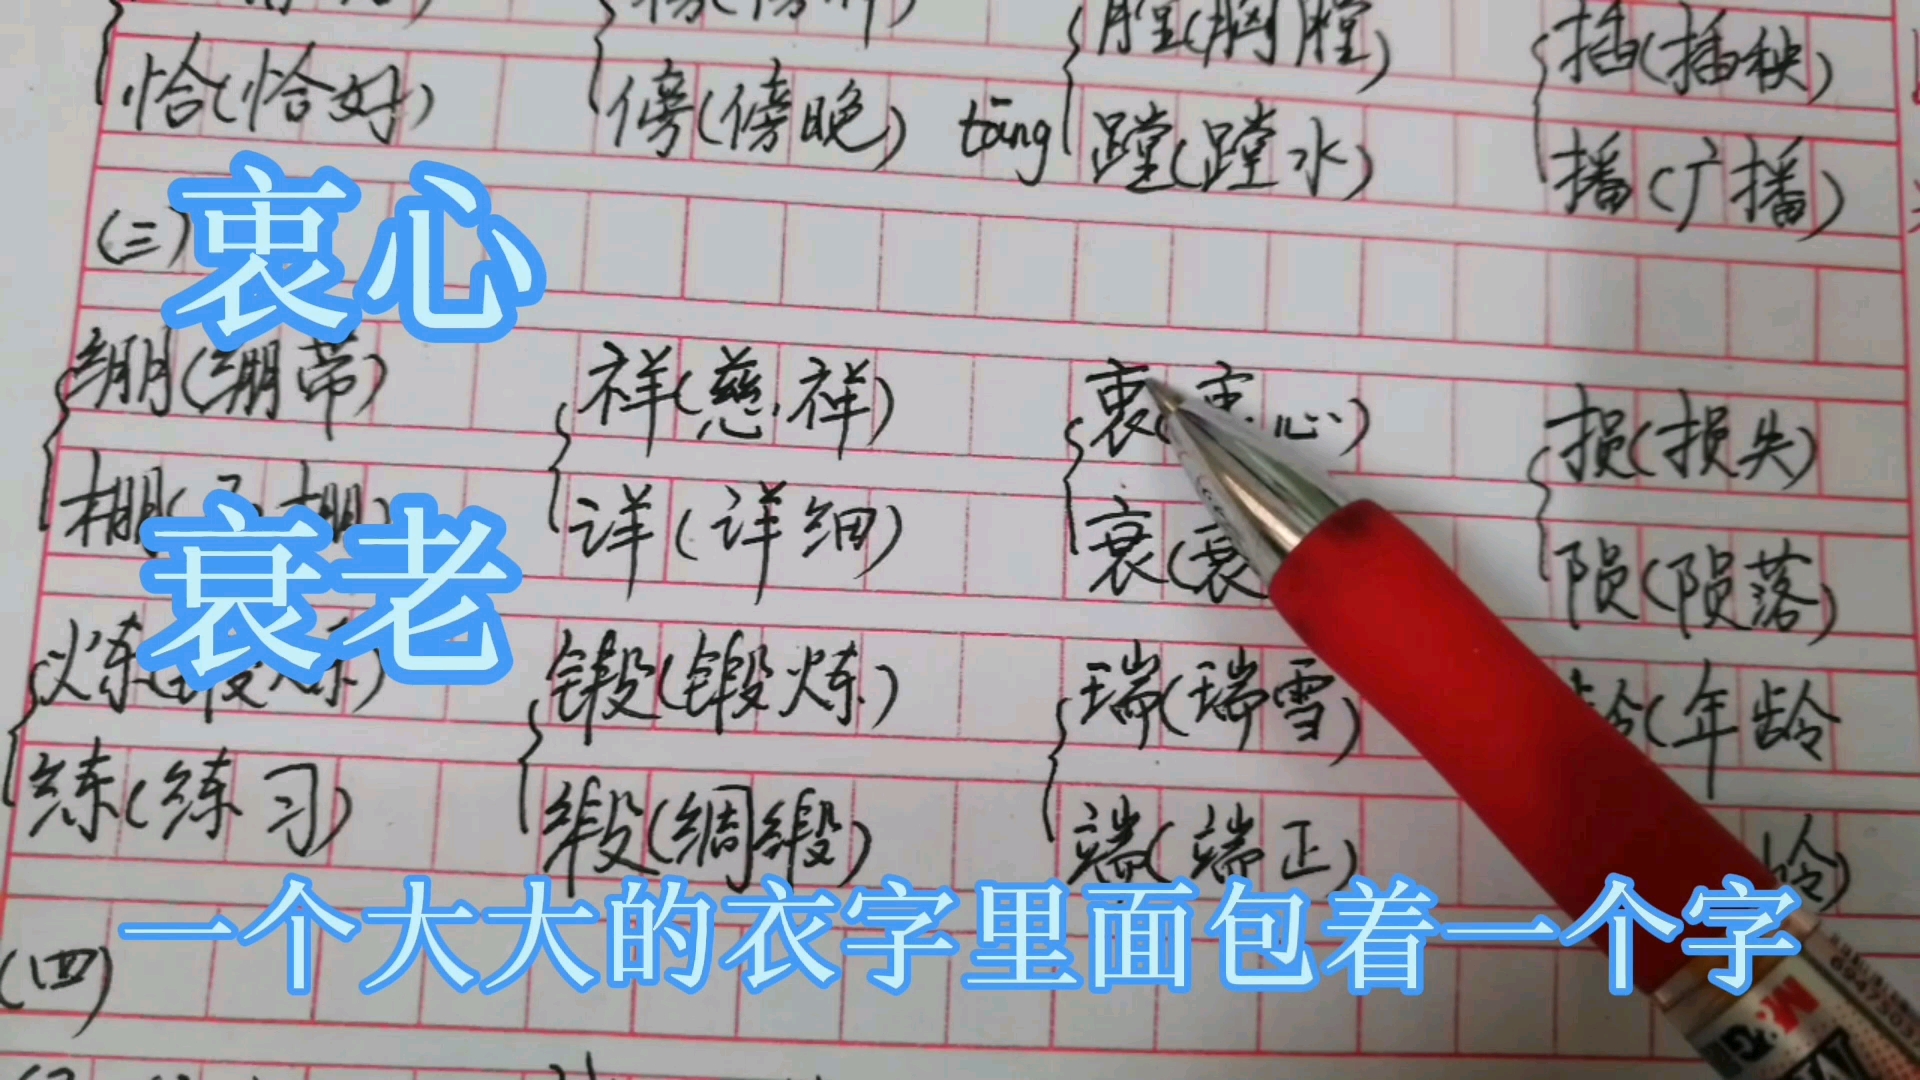 恰(恰好) 傍(傍晚) tāng 膛(胸膛) 插(插秧)
蹚(蹚水) 播(广播)
(三)
衷心
绷(绷带) 祥(慈祥) 衷(衷心) 损(损失)
棚( 棚) 详(详细) 衰(衰 陨(陨落)
衰老
炼(锻炼) 锻(锻炼) 瑞(瑞雪) 龄(年龄
练(练习) 缎(绸缎) 端(端正)
一个大大的衣字里面包着一个字
(四)